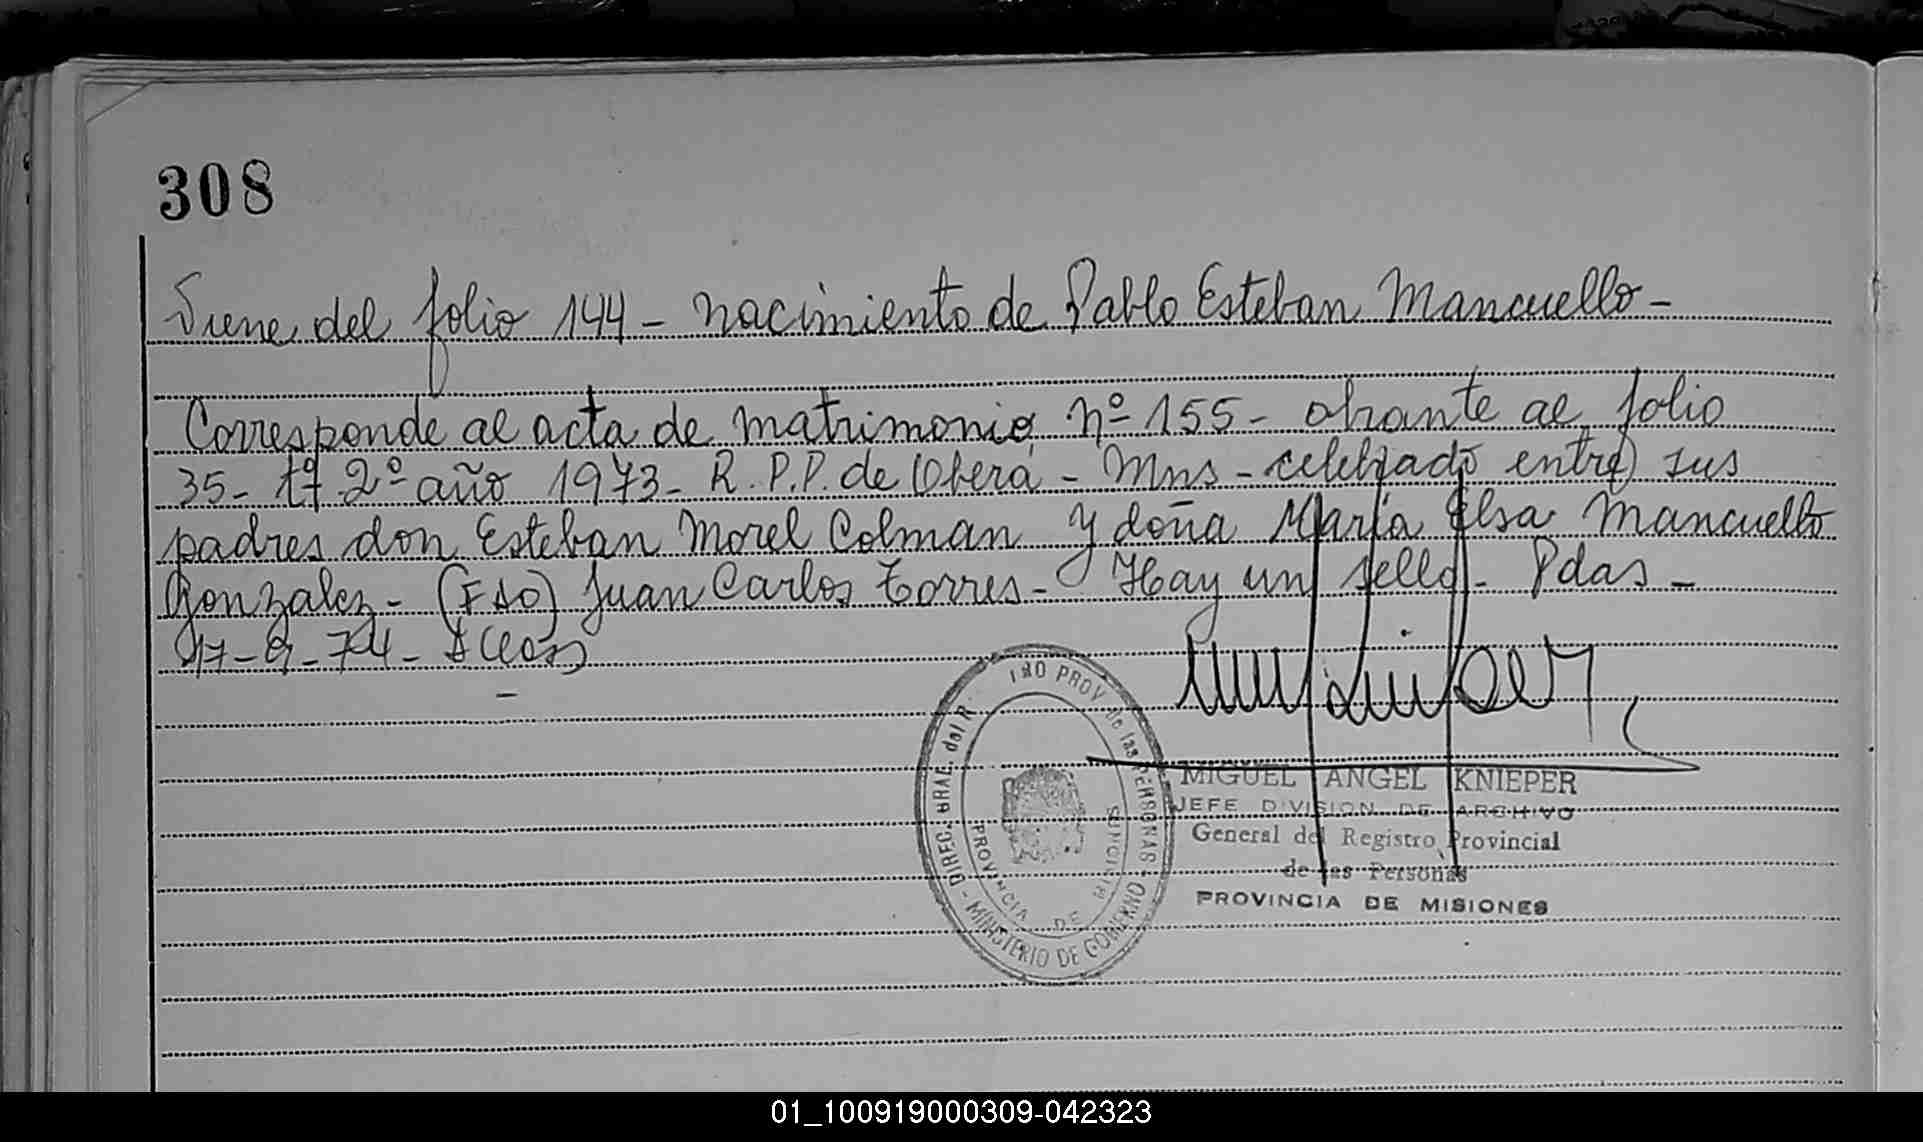 308
Viene del folio 144 - nacimiento de Pablo Esteban Mancuello -
Corresponde al acta de matrimonio nº 155 - obrante al folio
35 - tº 2º año 1973 - R.P.P. de Oberá - Mns - celebrado entre sus
padres don Esteban Morel Colman y doña María Elsa Mancuello
Gonzalez - (FDO) Juan Carlos Torres - Hay un sello - Pdas -
17-9-74 -
DIREC. GRAL. del R PROV de las PERSONAS - MINISTERIO DE GOBIERNO
PROVINCIA DE
MIGUEL ANGEL KNIEPER
JEFE DIVISION DE ARCHIVO
General del Registro Provincial
de las Personas
PROVINCIA DE MISIONES
01_100919000309-042323